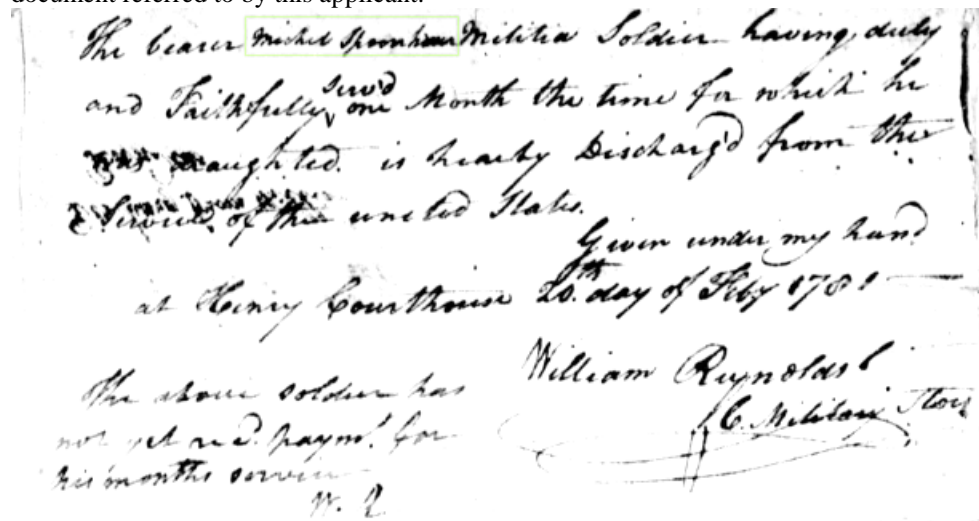 document referred to by this applicant.
The bearer Michel Spoonhour Militia Soldier having duly
and Faithfully serv'd one Month the time for which he
was Draughted. is hearby Discharg'd from the
Service of the united States.
Given under my hand
at Henry Courthouse 20th day of Feby 1781
William Reynolds
C. Military Stors
The above soldier has
not yet recd. paymt. for
his months service
W. R